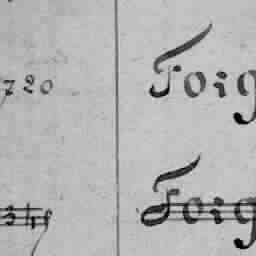 720 Foig
Foig